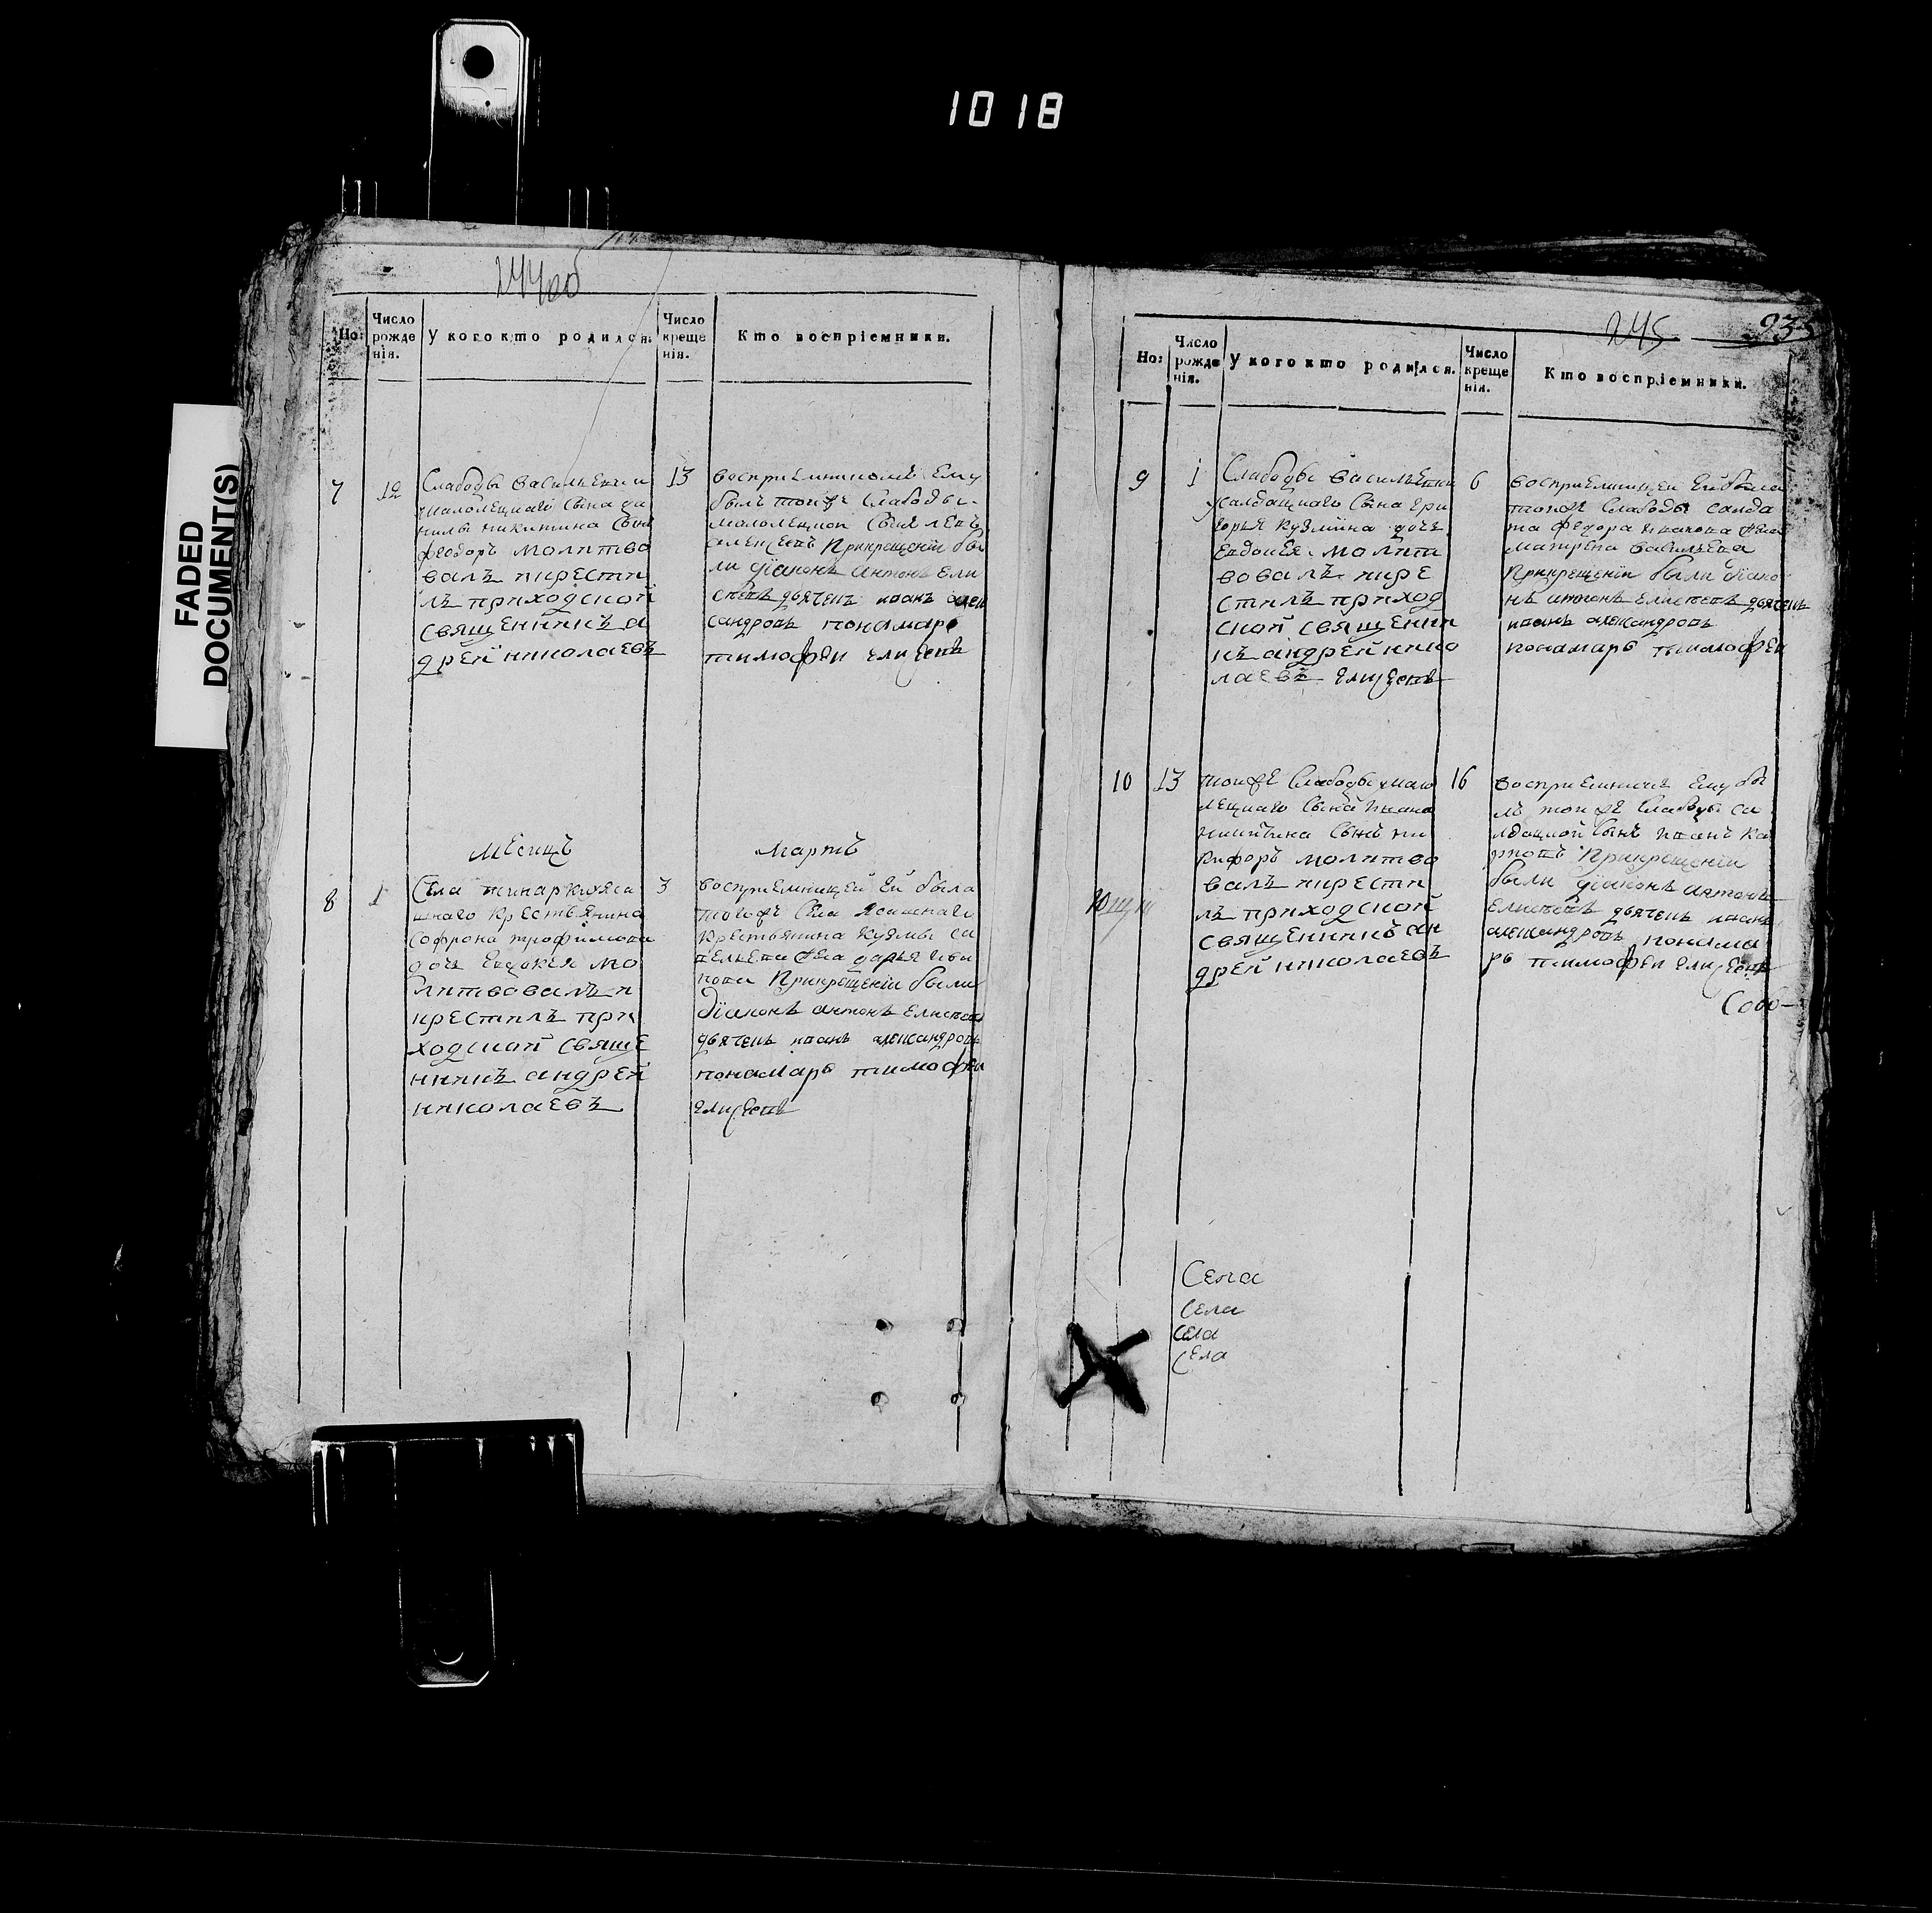 1018
FADED
DOCUMENT(S)
244об
Но:
Число рожденія.
У кого кто родился.
Число крещенія.
Кто воспріемники.
7
12
Слабоды Василъевки
малолецкаго сына да
нилы никитина сынъ
феодоръ молитво
валъ икрести
лъ приходской
священникъ а
дрей николаевъ
13
восприемникомъ Ему
былъ тойже слабоды
малолецкой сынъ
Прикрещеніи бы
ли діаконъ антонъ Ели
сеевъ дьячекъ иванъ алек
сандровъ понамарь
тимофеи елисеевъ
Месяцъ
Мартъ
8
1
Села
шнаго крестьянина
софрона трофимова
дочь Евдокея мо
литвовалъ и
крестилъ при
ходской свяще
нникъ андрей
николаевъ
3
восприемницей Ей была
тогожъ Села ясашнаго
крестьянина кузмы са
велъева жена дарья ива
нова Прикрещеніи были
діаконъ антонъ Елисеевъ
дьячекъ иванъ александровъ
понамарь тимофеи
елисеевъ
245
235
Но:
Число рожденія.
У кого кто родился.
Число крещенія.
Кто воспріемники.
9
1
Слабоды василъевки
салдацкаго сына гри
горья кузмина дочь
Евдокея молит
вовалъ икре
стилъ приход
ской священни
къ андрей нико
лаевъ елисеевъ
6
восприемницей Ей была
тойже слабоды салда
та федора жена
матрена василъева
Прикрещеніи были діако
нъ антонъ елисеевъ дьячекъ
иванъ александровъ
понамарь тимофеи
10
13
тойже слабоды мало
лецкаго сына ивана
никитина сынъ ни
кифоръ молитво
валъ икрести
лъ приходской
священникъ ан
дрей николаевъ
16
восприемникъ ему бы
лъ тойже слабоды са
лдацкой сынъ иванъ ка
рповъ Прикрещеніи
были діаконъ антонъ
елисеевъ дьячекъ иванъ
александровъ понама
рь тимофеи елисеевъ
Села
Села
Села
Села